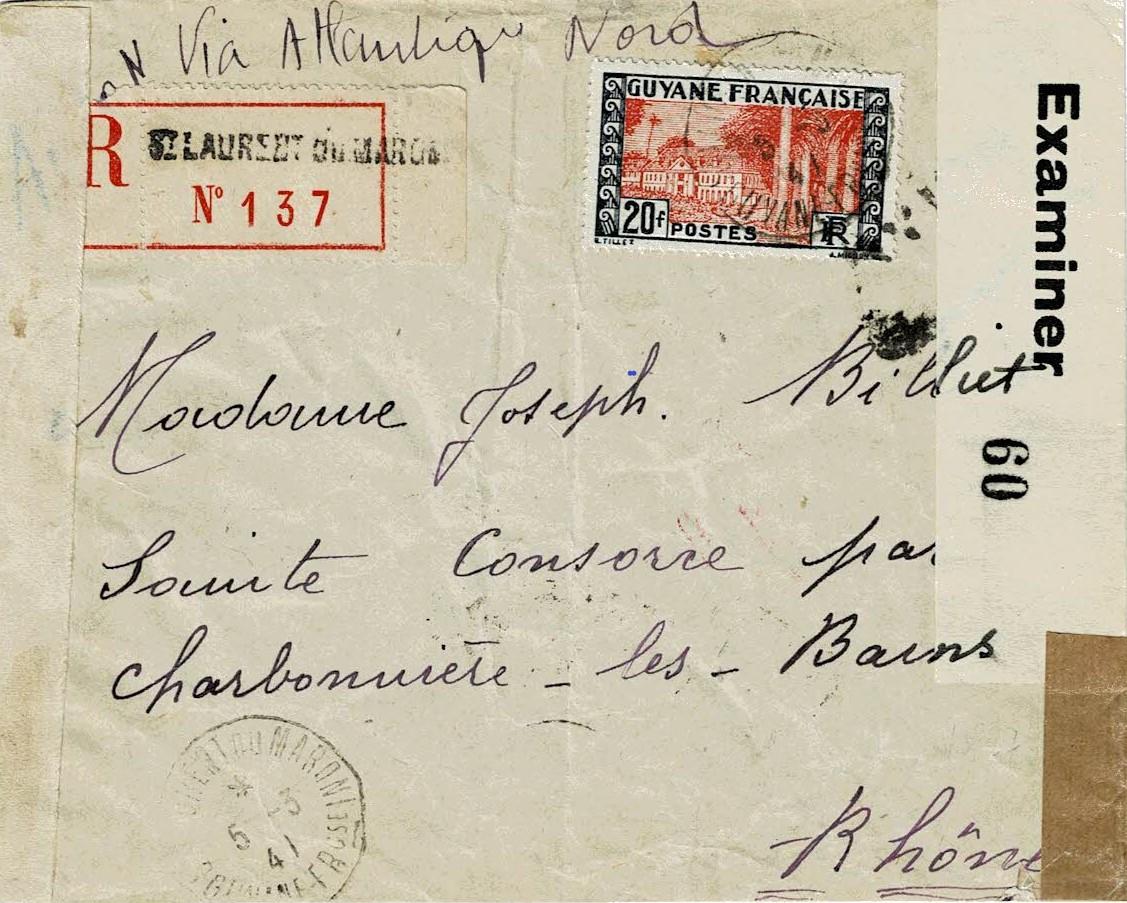 Via Atlantique Nord
R
ST LAURENT DU MARONI
N° 137
GUYANE FRANÇAISE
20f POSTES RF
Examiner 60
Madame Joseph. Billiet
Sainte Consorce par
Charbonnière - les - Bains
Rhône
LAURENT DU MARONI
* 13
5 41
GUYANE FRCSE